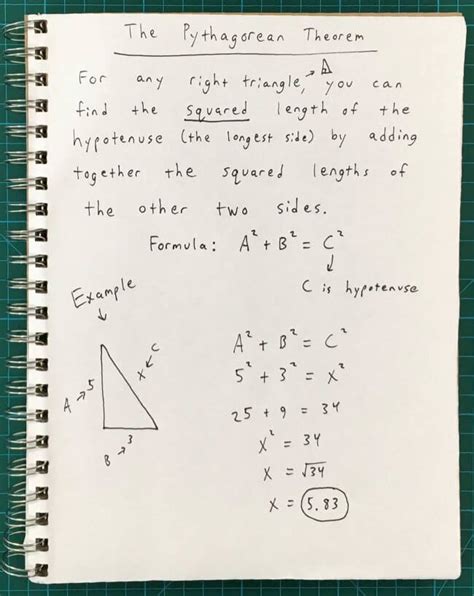 The Pythagorean Theorem
For any right triangle, you can
find the squared length of the
hypotenuse (the longest side) by adding
together the squared lengths of
the other two sides.
Formula: A² + B² = C²
C is hypotenuse
Example
A 5
C
X
3
B
A² + B² = C²
5² + 3² = X²
25 + 9 = 34
X² = 34
X = √34
X = 5.83